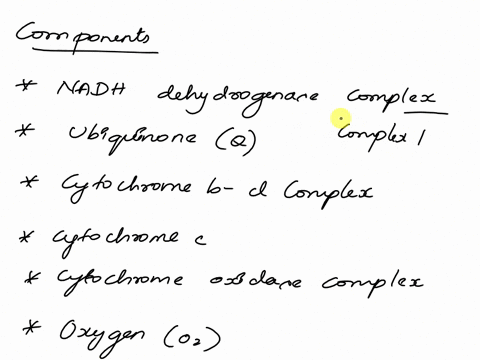 Components
* NADH dehydrogenase complex
* Ubiquinone (Q) Complex 1
* Cytochrome b-c1 Complex
* Cytochrome c
* Cytochrome oxidase complex
* Oxygen (O2)